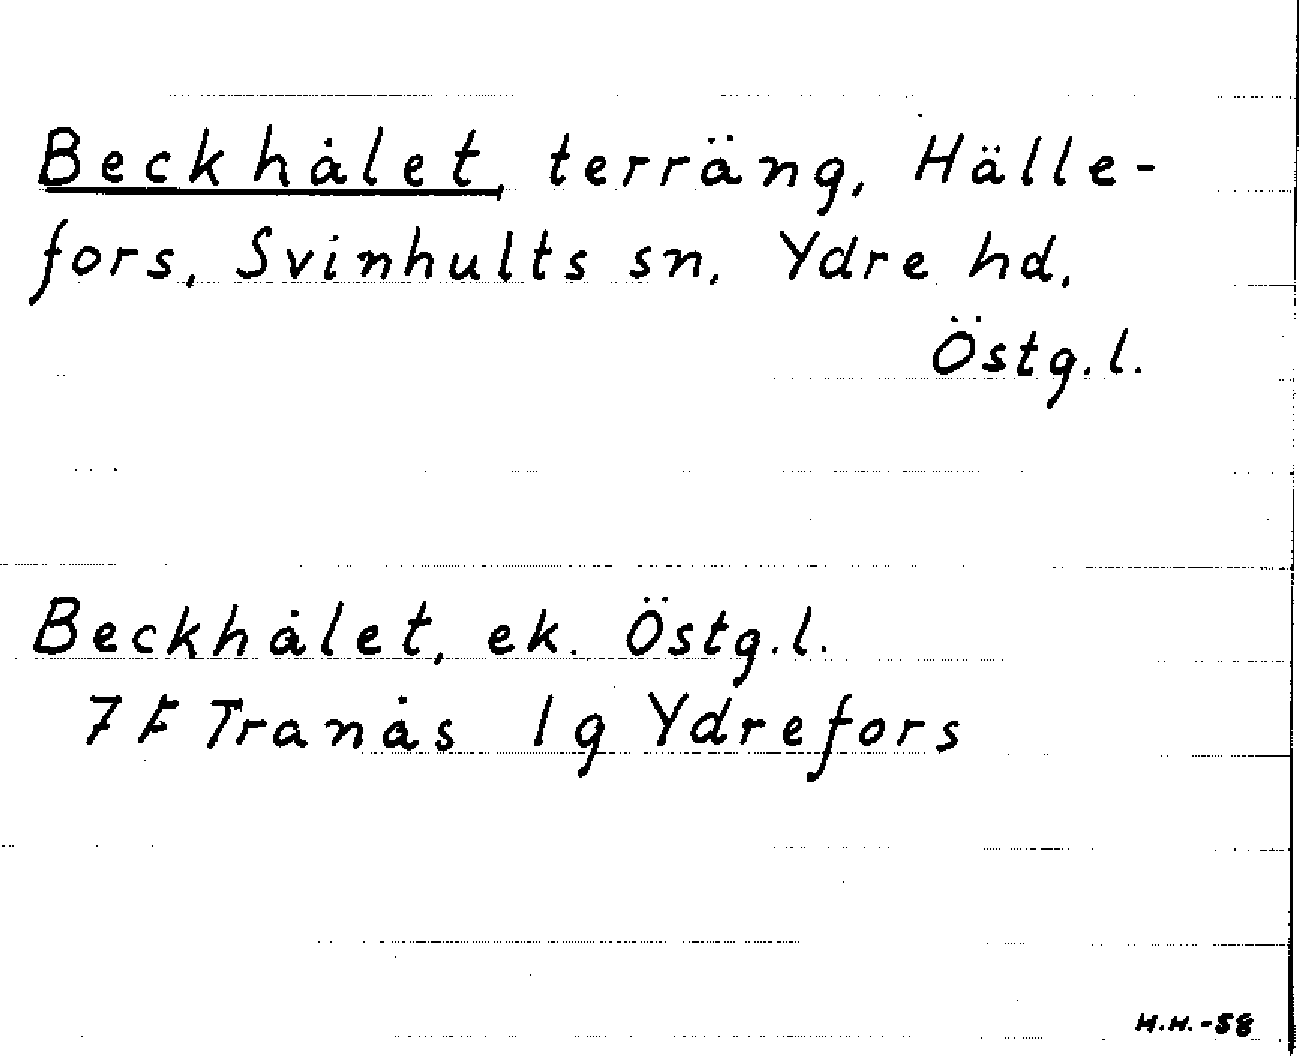 Beckhålet, terräng, Hälle-
fors, Svinhults sn, Ydre hd,
Östg.l.
Beckhålet, ek. Östg.l.
7F Tranås 1g Ydrefors
H.H.-58